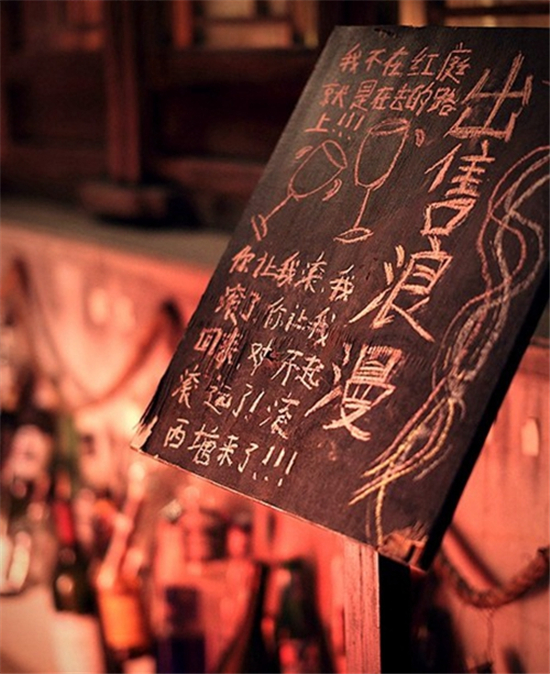 出售浪漫
我不在红庭
就是在去的路
上!!!
你让我滚,我
滚了,你让我
回来,对不起
滚远了!滚
西塘来了!!!